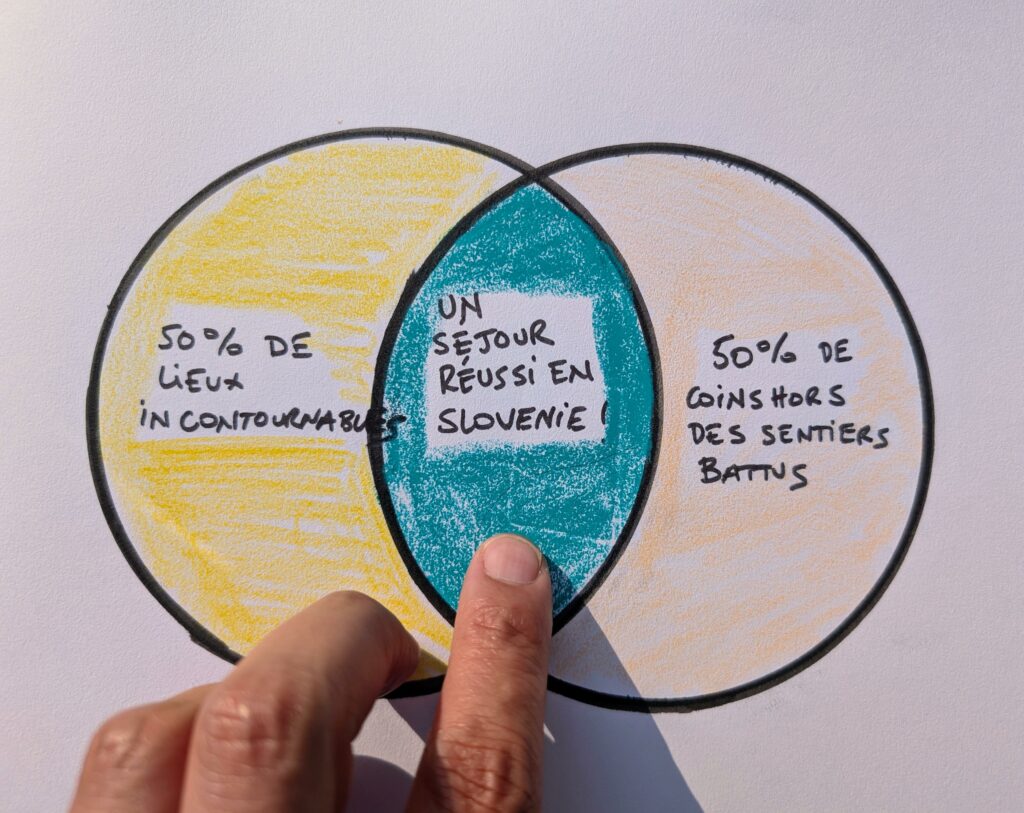 50% DE
LIEUX
INCONTOURNABLES
UN
SÉJOUR
RÉUSSI EN
SLOVENIE !
50% DE
COINS HORS
DES SENTIERS
BATTUS